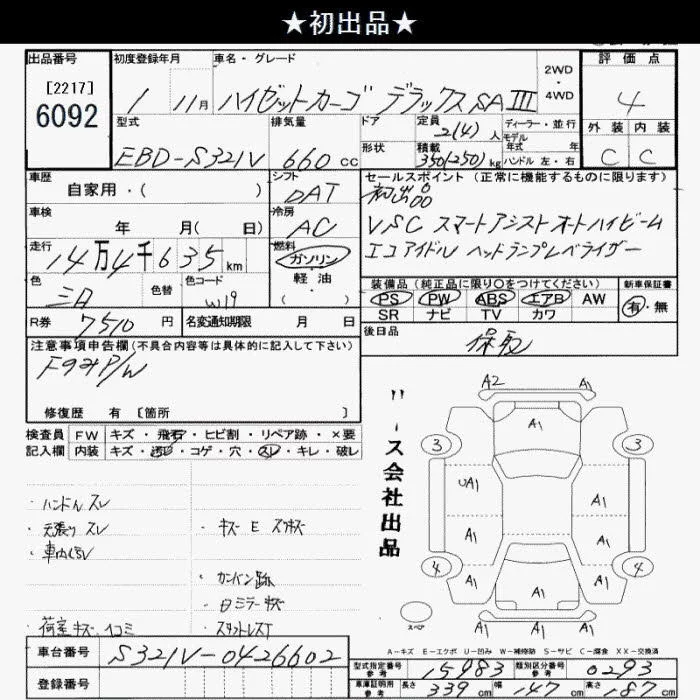 ★初出品★
出品番号 初度登録年月 車名・グレード 2WD・4WD 評価点
[2217]
6092
1 11月 ハイゼットカーゴ デラックスSAIII 4
型式 排気量 ドア 定員 2(4)人 ディーラー・並行 外装 内装
モデル年式 年式
EBD-S321V 660cc 形状 積載 350(250)kg ハンドル 左・右 C C
車歴 シフト セールスポイント (正常に機能するものに限ります)
自家用・( ) DAT 初出品
車検 冷房 VSC スマートアシスト オートハイビーム
年 月( 日) AC エコアイドル ヘッドランプレベライザー
走行 燃料
14万4千635km ガソリン・軽油・( )
色 色替 色コード 装備品 (純正品に限り○をつけてください) 新車保証書
W19 PS PW ABS エアB AW 有・無
SR ナビ TV カワ
R券 7510円 名変通知期限 月 日 後日品
注意事項申告欄(不具合内容等は具体的に記入して下さい) 保取
修復歴 有 [箇所 ]
検査員 FW キズ・飛石・ヒビ割・リペア跡・×要
記入欄 内装 キズ・汚レ・コゲ・穴・スレ・キレ・破レ
ース会社出品
A2 A1
A1
3 3
UA1 A1
A1 A1
4 A1 A1 4
A1
A1 A1
スペア
・ハンドル スレ
・天張り スレ
・キズ E スリキズ
・カンバン跡
・日ミラーキズ
・荷室キズ・凹コミ
A-キズ E-エクボ U-凹み W-補修跡 S-サビ C-腐食 XX-交換済
車台番号 S321V-0426602
型式指定番号 参考 15983 類別区分番号 参考 0293
登録番号 車庫証明用 参考 長さ 339cm 幅 147cm 高さ 187cm